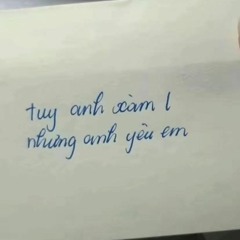 tuy anh xàm l
nhưng anh yêu em